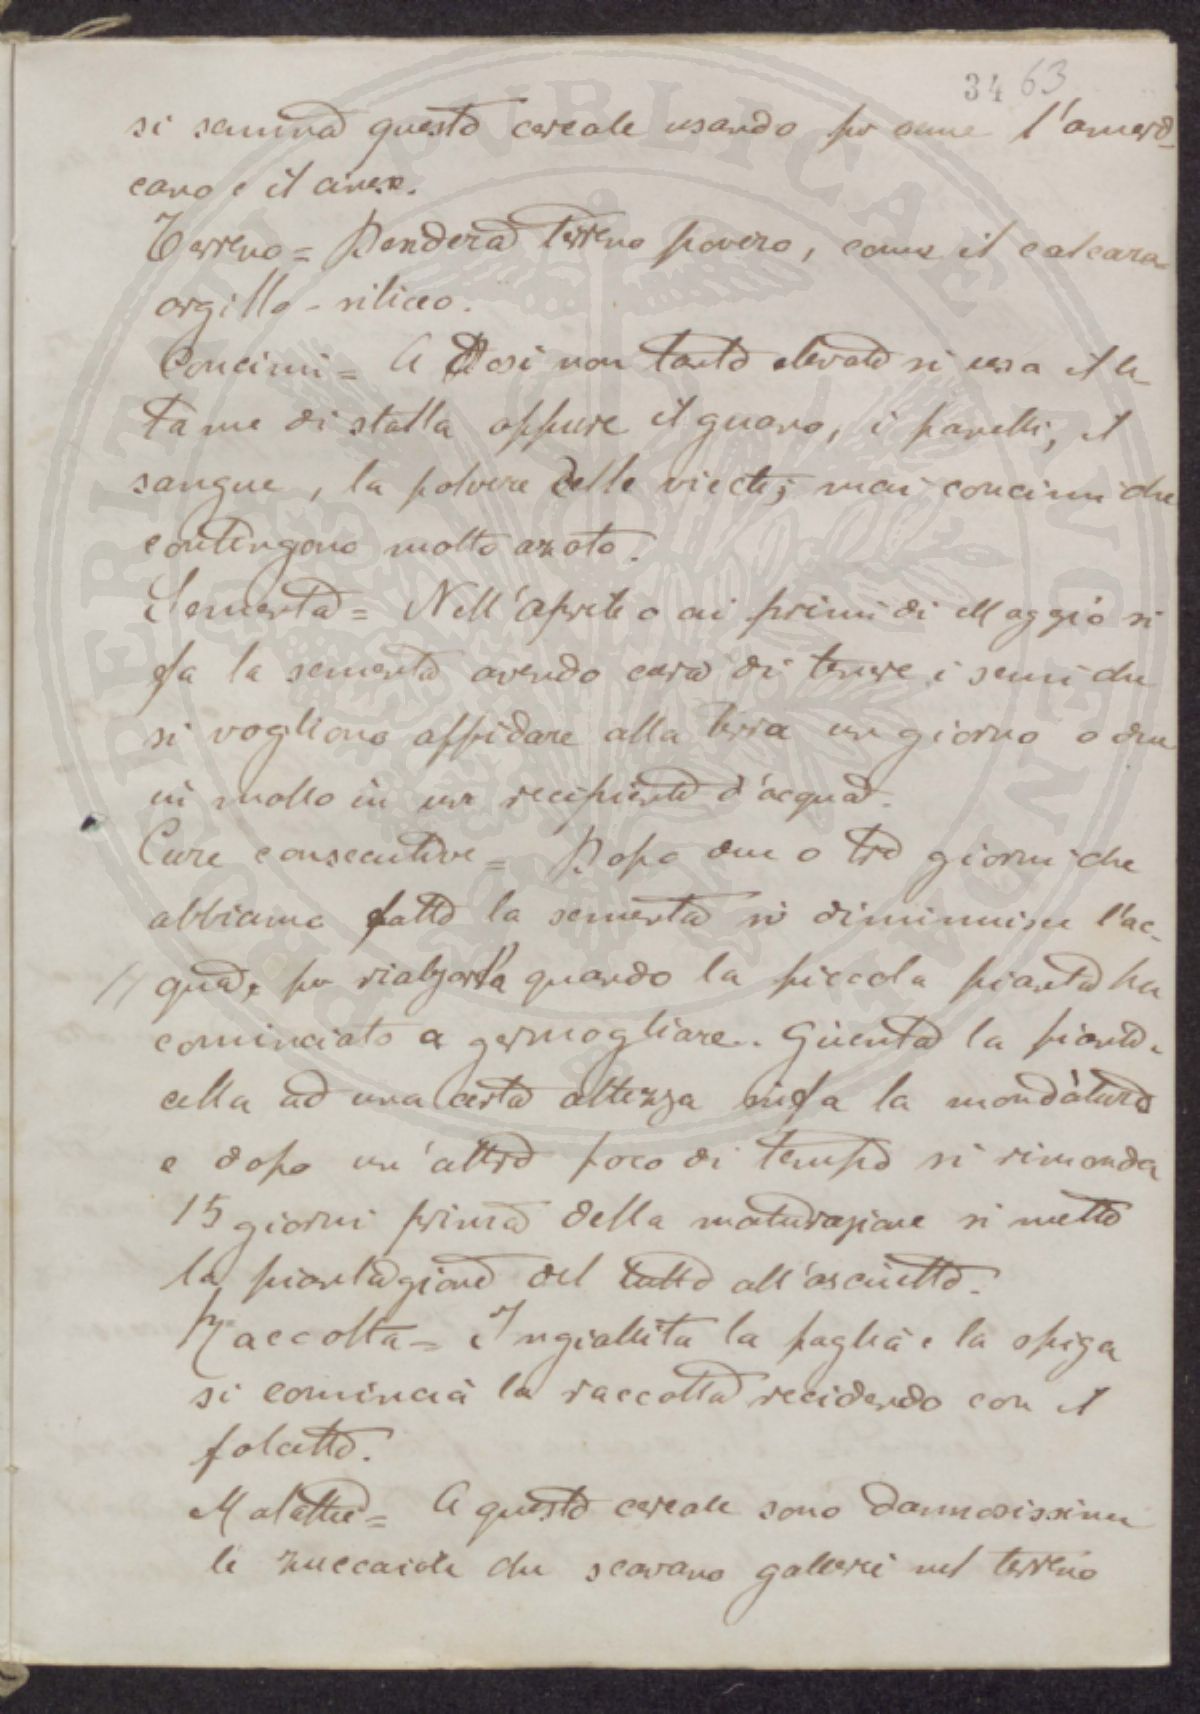 34 63
si semina questo cereale usando per seme l'ameri-
cano e il cinese.
Terreno = Pondera terreno povero, come il calcara-
argillo-siliceo.
Concimi = A dosi non tanto elevate si usa il le
tame di stalla oppure il guano, i panelli, il
sangue, la polvere delle vie ete; mai concimi che
contengono molto azoto.
Sementa = Nell'aprile o ai primi di Maggio si
fa la sementa avendo cura di tenere i semi che
si vogliono affidare alla terra un giorno o due
in mollo in un recipiente d'acqua.
Cure consecutive = Dopo due o tre giorni che
abbiamo fatto la sementa si diminuisce l'ac-
qua, per rialzarla quando la piccola pianta ha
cominciato a germogliare. Giunta la piante-
cella ad una certa altezza si fa la mondatura
e dopo un'altro poco di tempo si rimonda
15 giorni prima della maturazione si mette
la piantagione del tutto all'asciutto.
Raccolta = Ingiallita la paglia e la spiga
si comincia la raccolta recidendo con il
falcetto.
Malattie = A questo cereale sono dannosissime
le zuccaiole che scavano gallerie nel terreno
PROVVEDITORE PERITURAE PUBLICAE